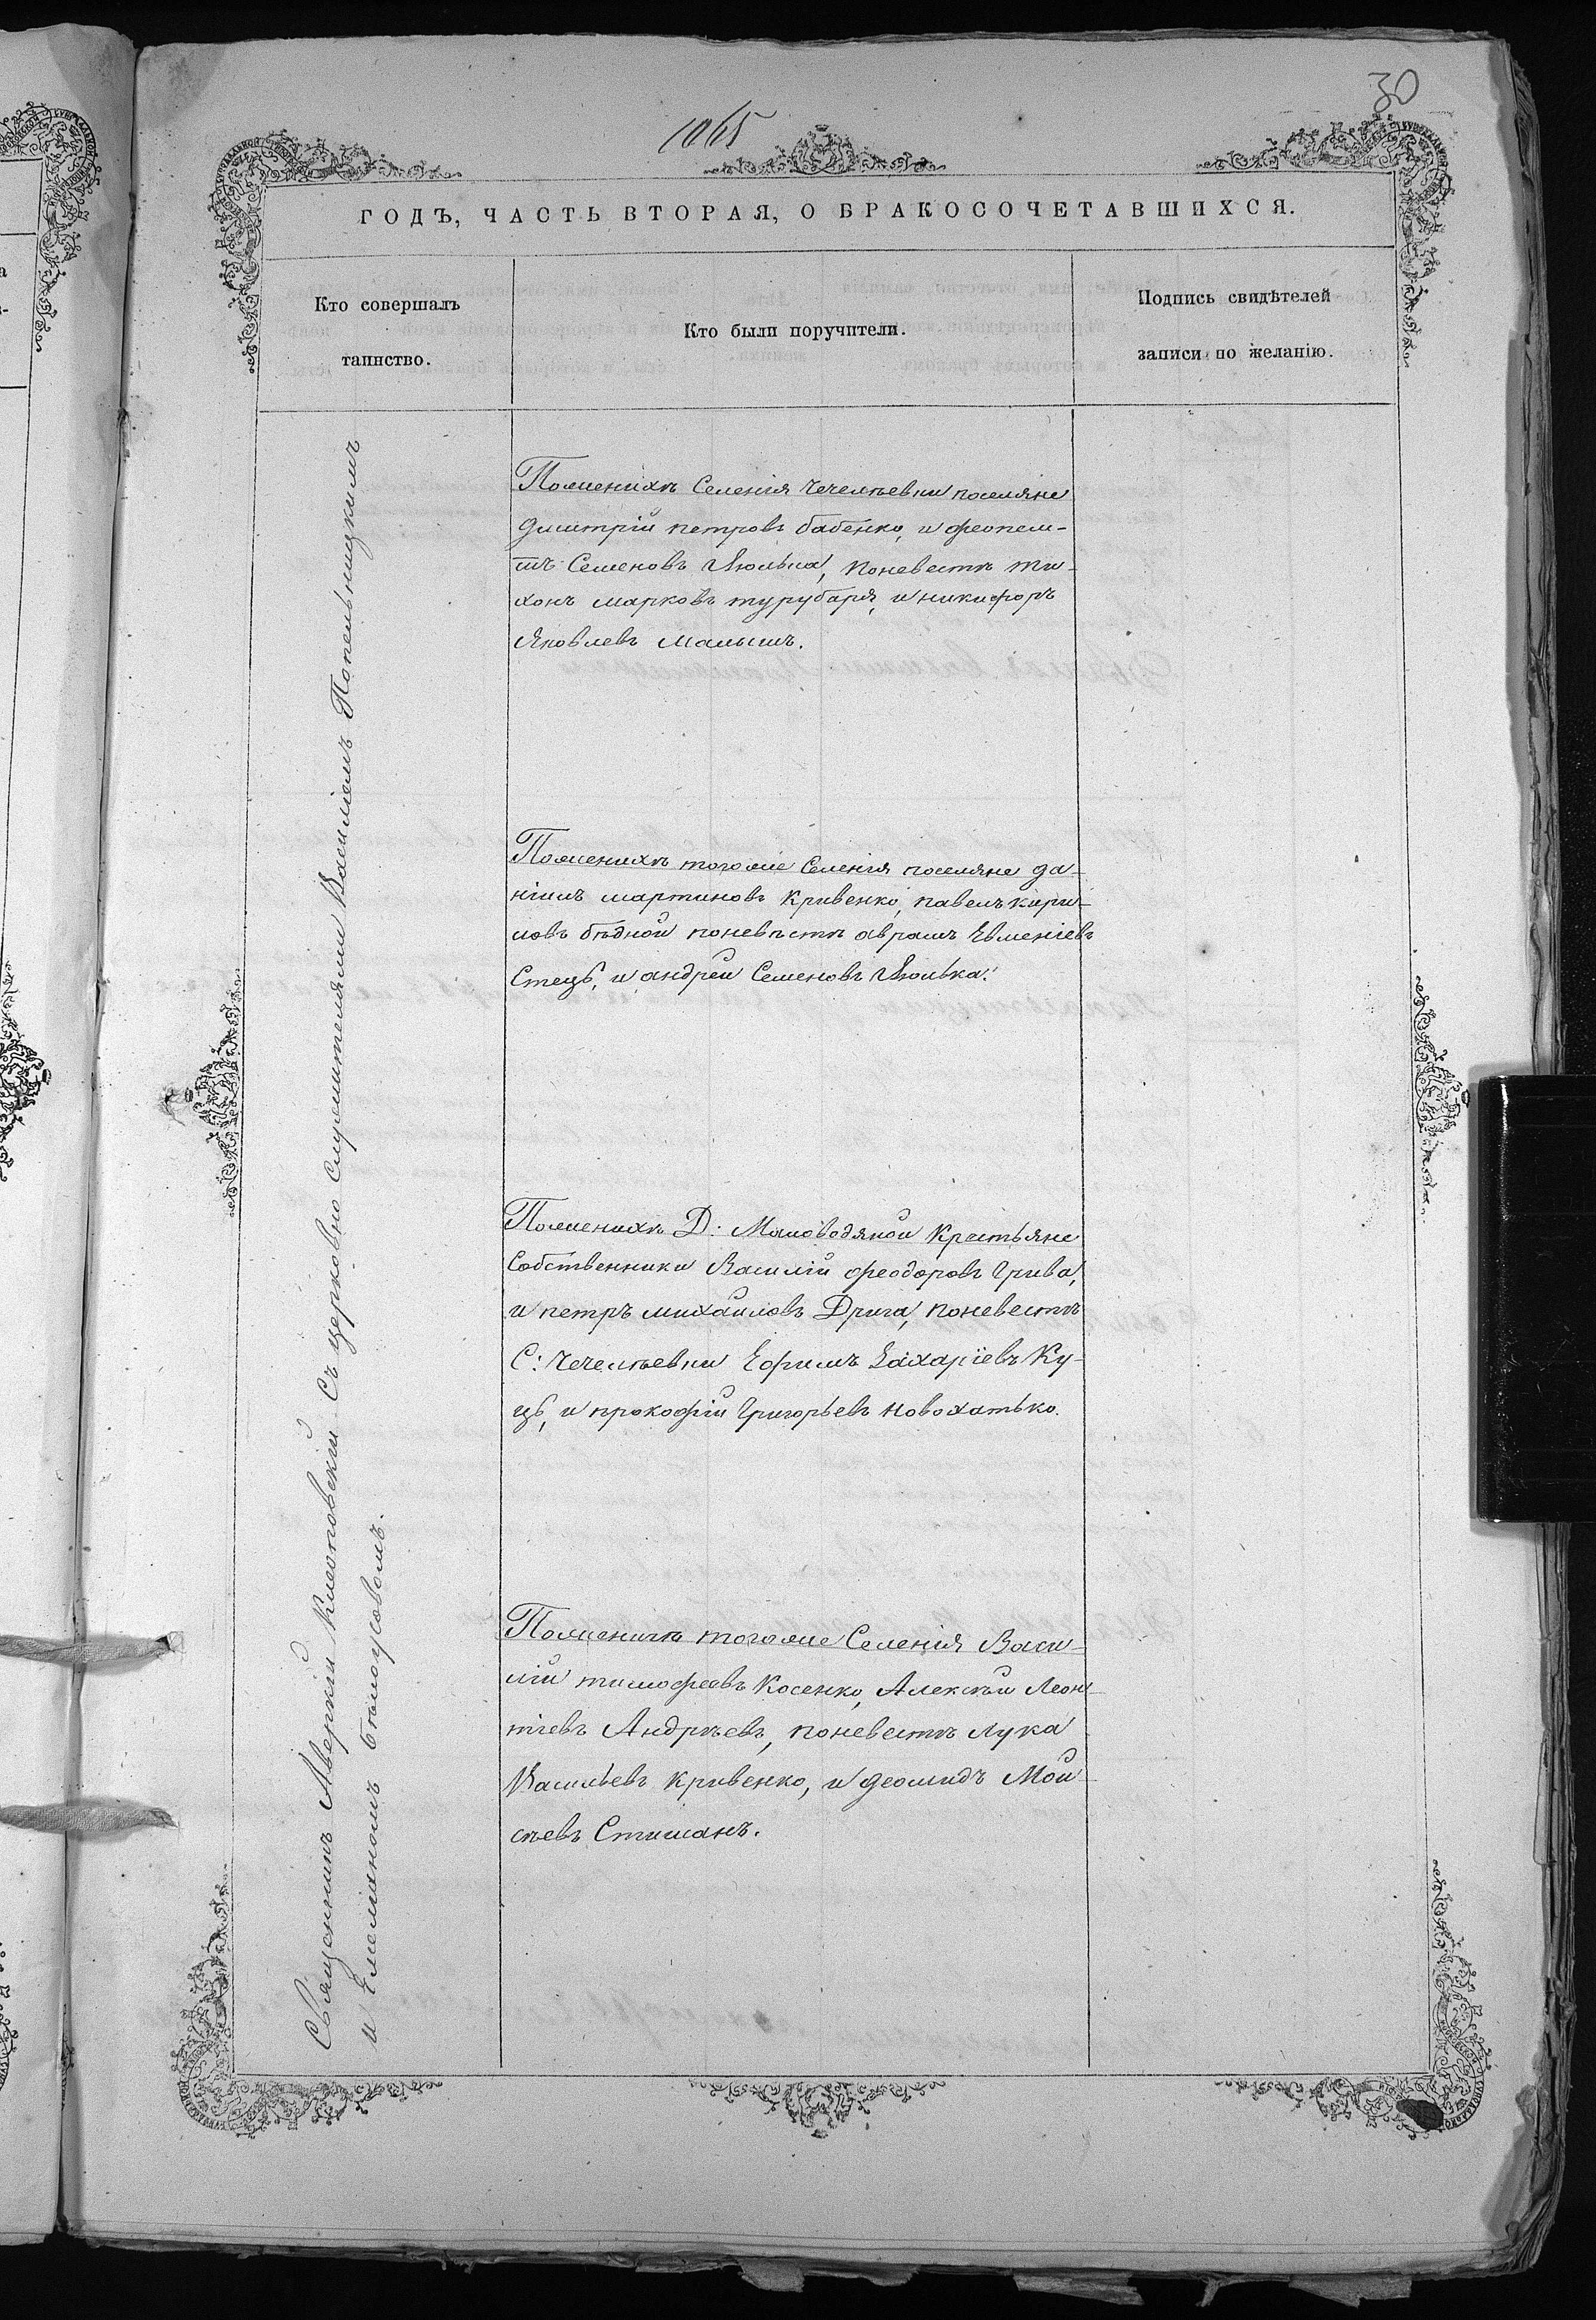 30
1065
ГОДЪ, ЧАСТЬ ВТОРАЯ, О БРАКОСОЧЕТАВШИХСЯ.
Кто совершалъ
таинство.
Кто были поручители.
Подпись свидѣтелей
записи по желанію.
Священникъ Аверкій Клеоповскій съ церковно служителями Василіемъ Попельницкимъ
и Емеліяномъ Бѣлоусовомъ.
Поженихѣ Селенія Чечелѣевки поселяне
Дмитрій петровъ бабенко, и феопем-
птъ Семеновъ Люлька, поневестѣ ти-
хонъ марковъ турубаря, и никифоръ
Яковлевъ Малышъ.
Поженихѣ тогоже Селенія поселяне да-
ніилъ мартиновъ Кривенко, павелъ кири-
ловъ бѣдной поневѣстѣ аврамъ Евменіевъ
Стець, и андрей Семеновъ Люлька.
Поженихѣ Д: Маловодяной Крестьяне
Собственники Василій феодоровъ Грива,
и петръ михайловъ Дрига, поневестѣ
С: Чечелѣевки Ефимъ Захаріевъ Ку-
ць, и прокофій Григорьевъ новохатько.
Поженихѣ тогоже Селенія Васи-
лій тимофеевъ Косенко, Алексѣй Леон-
тіевъ Андрѣевъ, поневестѣ лука
Васильевъ кривенко, и деомидъ Мои-
сѣевъ Стишанъ.